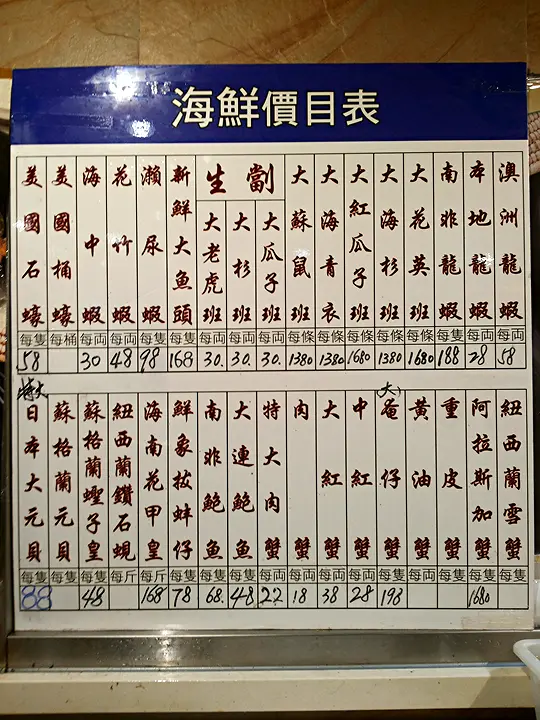 海鮮價目表
澳洲龍蝦 每両 58
本地龍蝦 每両 28
南非龍蝦 每隻 188
大花英班 每條 1680
大海杉班 每條 1380
大紅瓜子班 每條 1680
大海青衣 每條 1380
大蘇鼠班 每條 1380
生劏
大瓜子班 每両 30.
大杉班 每両 30.
大老虎班 每両 30.
新鮮大魚頭 每隻 168
瀨尿蝦 每隻 98
花竹蝦 每両 48
海中蝦 每両 30
美國桶蠔 每桶
美國石蠔 每隻 58
紐西蘭雪蟹 每隻
阿拉斯加蟹 每隻 1680
重皮蟹 每隻
黃油蟹 每両
大奄仔蟹 每隻 198
中紅蟹 每両 28
大紅蟹 每両 38
肉蟹 每両 18
特大肉蟹 每両 22
大連鮑魚 每隻 48
南非鮑魚 每隻 68.
鮮象拔蚌仔 每隻 78
海南花甲皇 每斤 168
紐西蘭鑽石蜆 每斤
蘇格蘭蟶子皇 每隻 48
蘇格蘭元貝 每隻
特大
日本大元貝 每隻 88